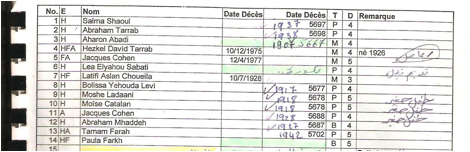 No. E Nom Date Décès Date Décès T D Remarque
1 H Salma Shaoul 1937 5697 P 4
2 H Abraham Tarrab 1938 5698 P 4
3 H Aharon Abadi 1907 5667 M 4
4 HFA Hezkel David Tarrab 10/12/1975 M 4 né 1926
5 FA Jacques Cohen 12/4/1977 M 5
6 HA Lea Elyahou Sabati P 4
7 HF Latifi Aslan Chouella 10/7/1928 M 3
8 H Bolissa Yehouda Levi 1917 5677 P 4
9 H Moshe Ladaani 1918 5678 P 5
10 H Moïse Catalan 1918 5678 P 5
11 A Jacques Cohen 1928 5688 P 4
12 H Abraham Mhaddeh 5687 B 4
13 HA Tamam Farah 1942 5702 P 5
14 HF Paula Farkh B 5
15